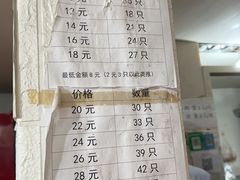 14元 21只
16元 24只
18元 27只
最低金额8元（2元3只以此类推）
价格 数量
20元 30只
22元 33只
24元 36只
26元 39只
28元 42只